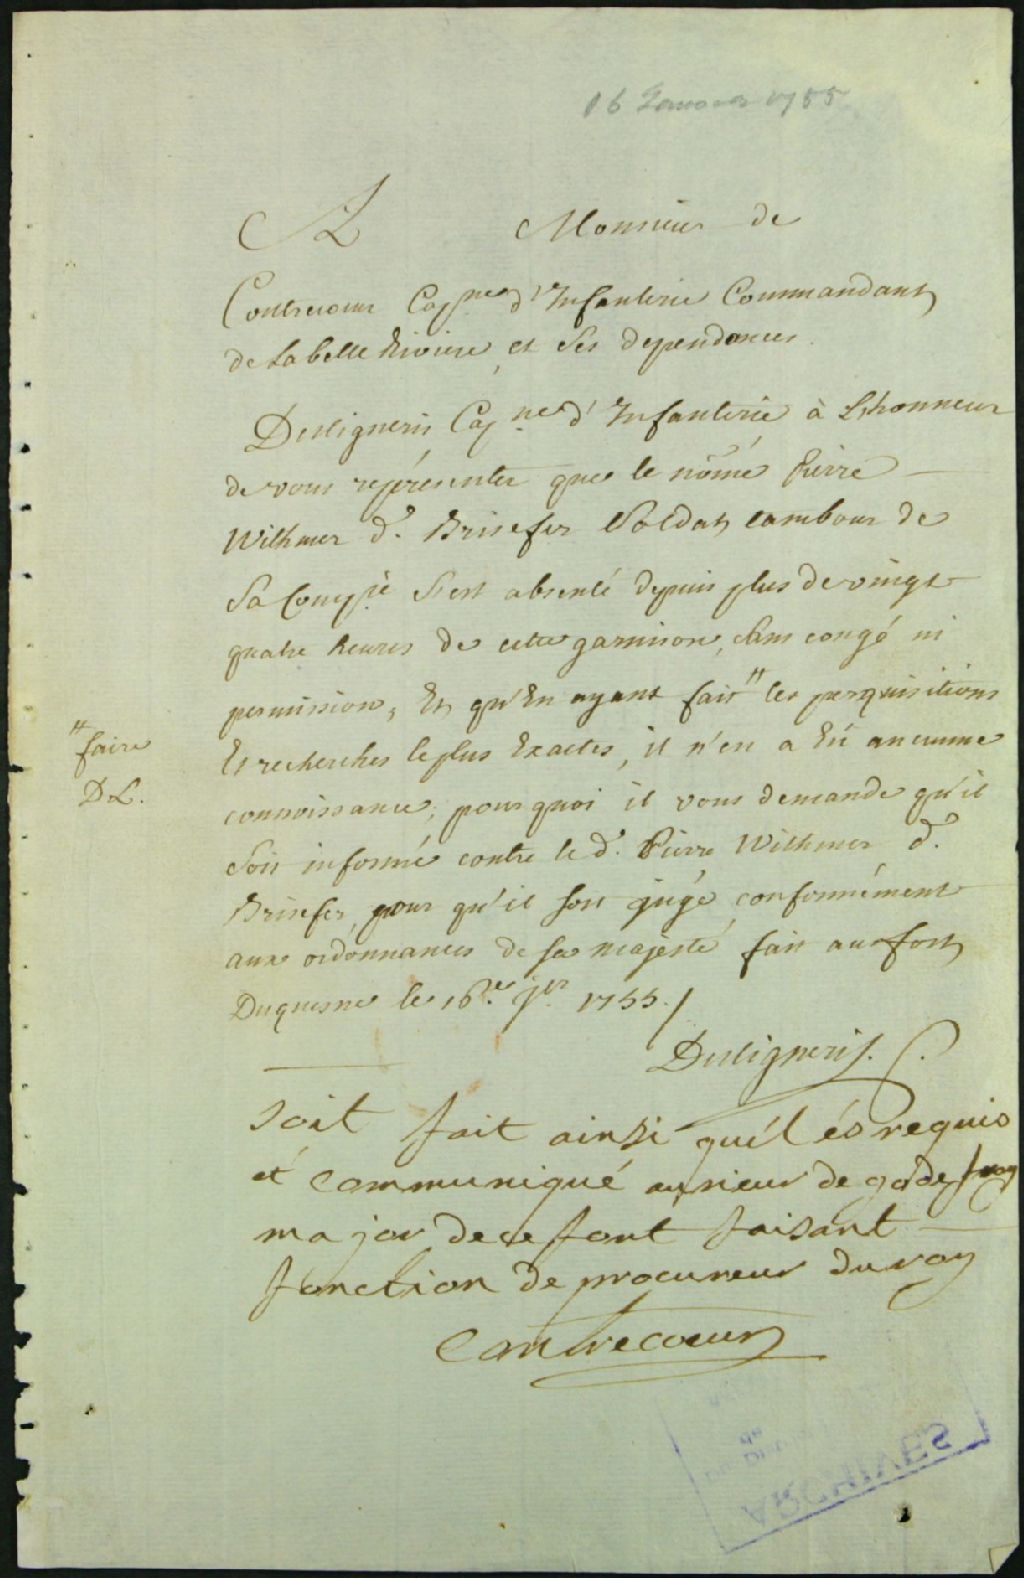 16 Janvier 1755
A Monsieur de
Contrecœur Cap.ne d'Infanterie Commandant
de la belle Riviere, et Ses dependances
Desligneris Cap.ne d'Infanterie à Lhonneur
de vous représenter que le nômé Pierre
Wilhmer d.t Brisefer Soldat tambour de
Sa Comp.ie S'est absenté depuis plus de vingt
quatre heures de cette garnison, Sans congé ni
permission, Et qu'En ayant fait " les perquisitions
"faire
D L.
Et recherches le plus Exactes, il n'en a Eü aucune
connoissance, pourquoi il vous demande qu'il
Soit informé contre le d.t Pierre Wilhmer d.t
Brisefer, pour qu'il soit jugé conformément
aux ordonnances de sa majesté fait au fort
Duquesne le 16.e j.er 1755./
Desligneris.
Soit fait ainsi quél és requis
et communiqué au sieur de godefroy
major de ce fort faisant
fonction de procureur du roy
Contrecoeur
ARCHIVES